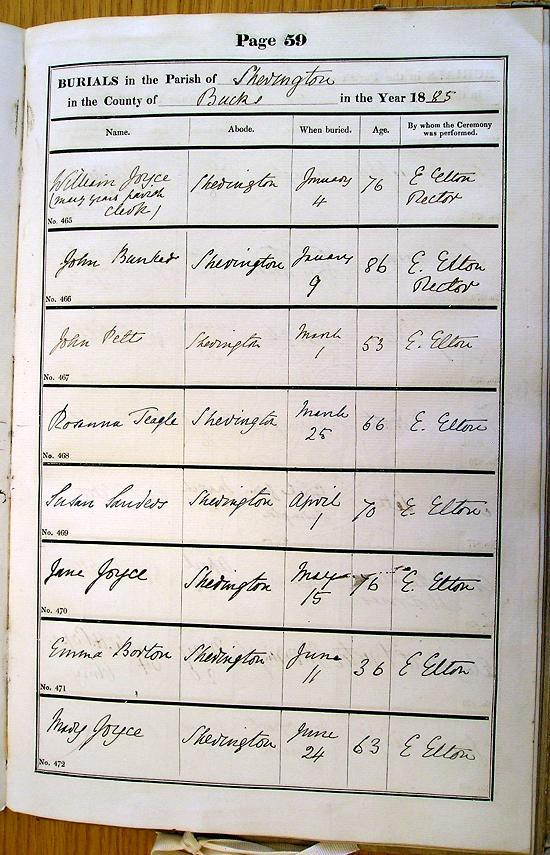 Page 59
BURIALS in the Parish of Sherington
in the County of Bucks in the Year 1885
Name. Abode. When buried. Age. By whom the Ceremony was performed.
William Joyce Sherington January 76 E Elton
(many years parish 4 Rector
clerk)
No. 465
John Bunker Sherington January 86 E. Elton
9 Rector
No. 466
John Pett Sherington March 53 E. Elton
1
No. 467
Rosanna Teagle Sherington March 66 E. Elton
25
No. 468
Susan Sanders Sherington April 70 E. Elton
1
No. 469
Jane Joyce Sherington May 76 E. Elton
15
No. 470
Emma Borton Sherington June 36 E Elton
11
No. 471
Mary Joyce Sherington June 63 E Elton
24
No. 472